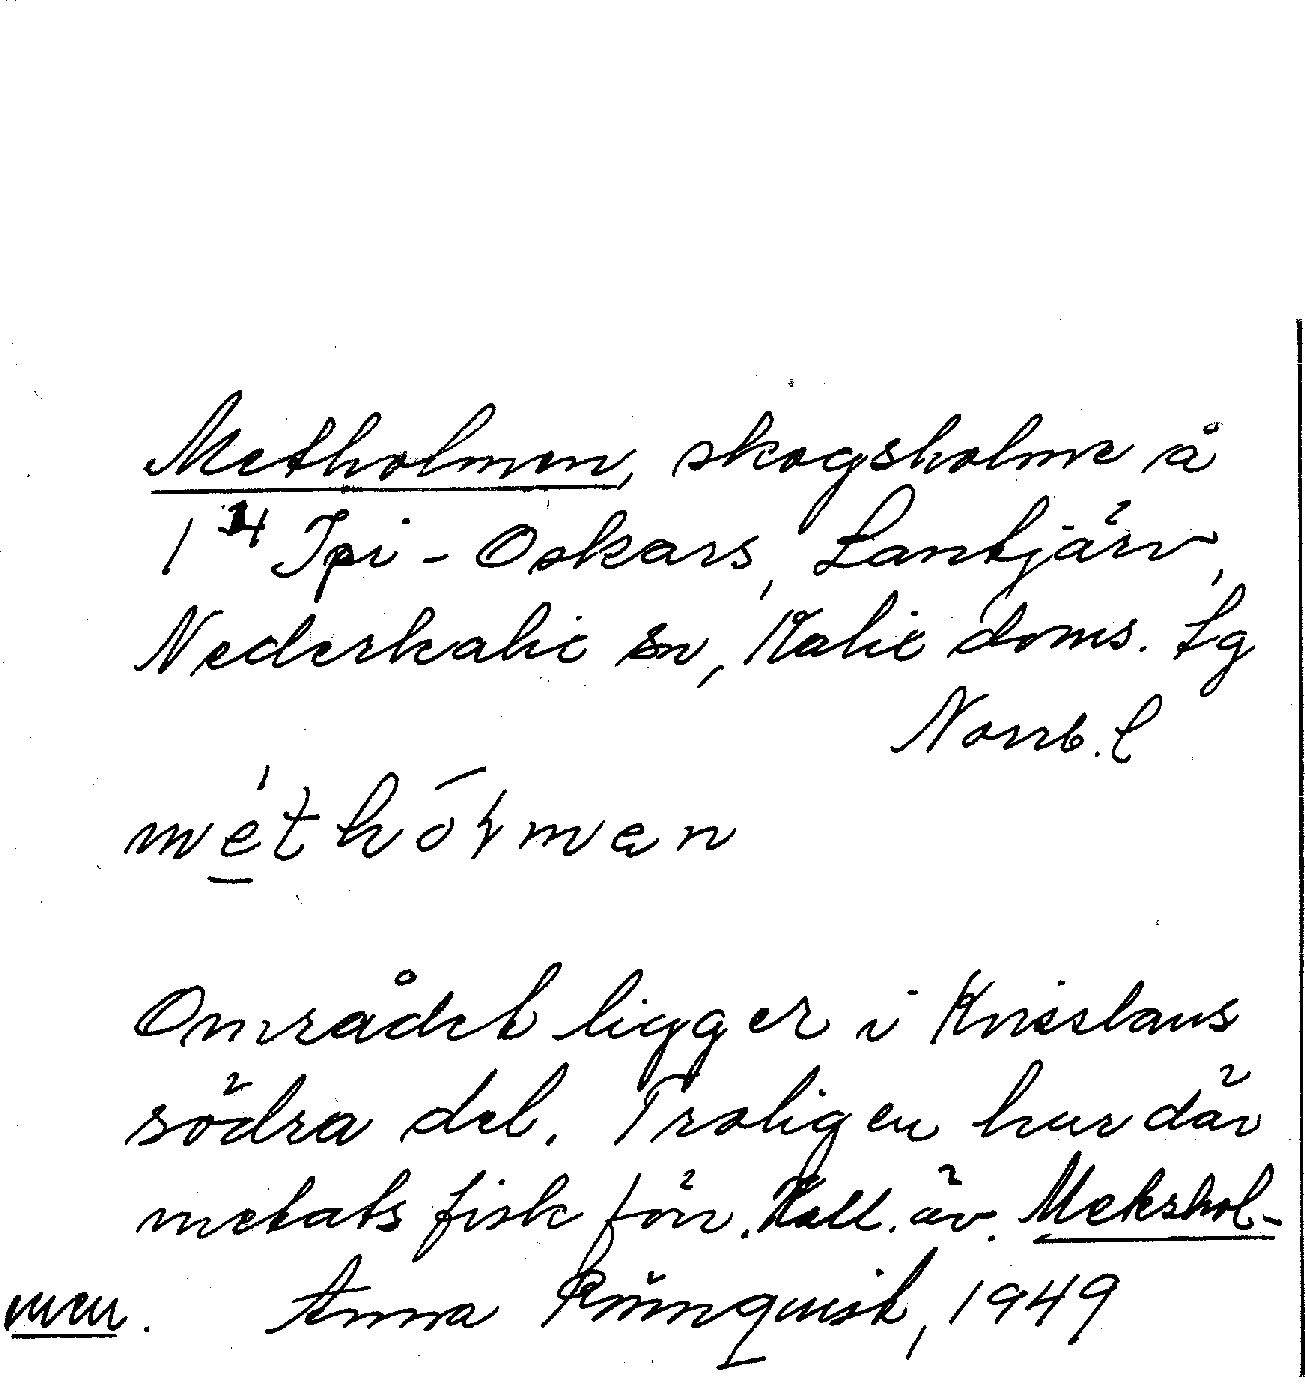 Metholmen, skogsholme å
1⁴ Ipi-Oskars, Lantjärv,
Nederkalix sn, Kalix doms. Lg
Norrb. l
méthóɫmen
Området ligger i
södra del. Troligen har där
metats fisk förr. Kall. äv. Mekshol-
men. Anna Rönnquist, 1949